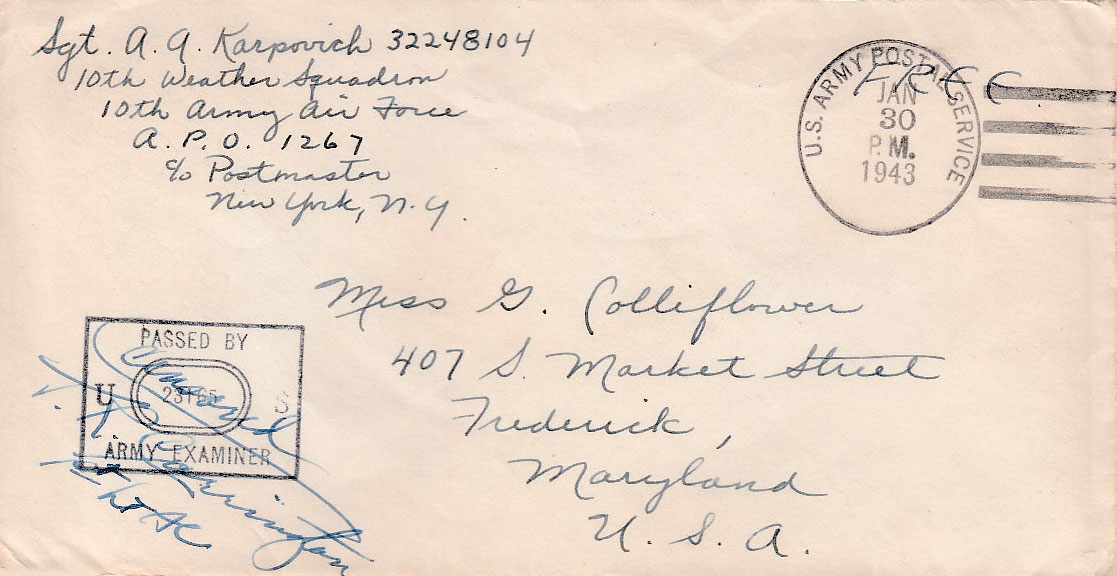 Sgt. A. A. Karpovich 32248104
10th Weather Squadron
10th Army Air Force
A. P. O. 1267
c/o Postmaster
New York, N. Y.
FREE
U.S. ARMY POSTAL SERVICE
JAN
30
P.M.
1943
Miss G. Colliflower
407 S. Market Street
Frederick,
Maryland
U. S. A.
PASSED BY
U S
ARMY EXAMINER
Censored
Carrington